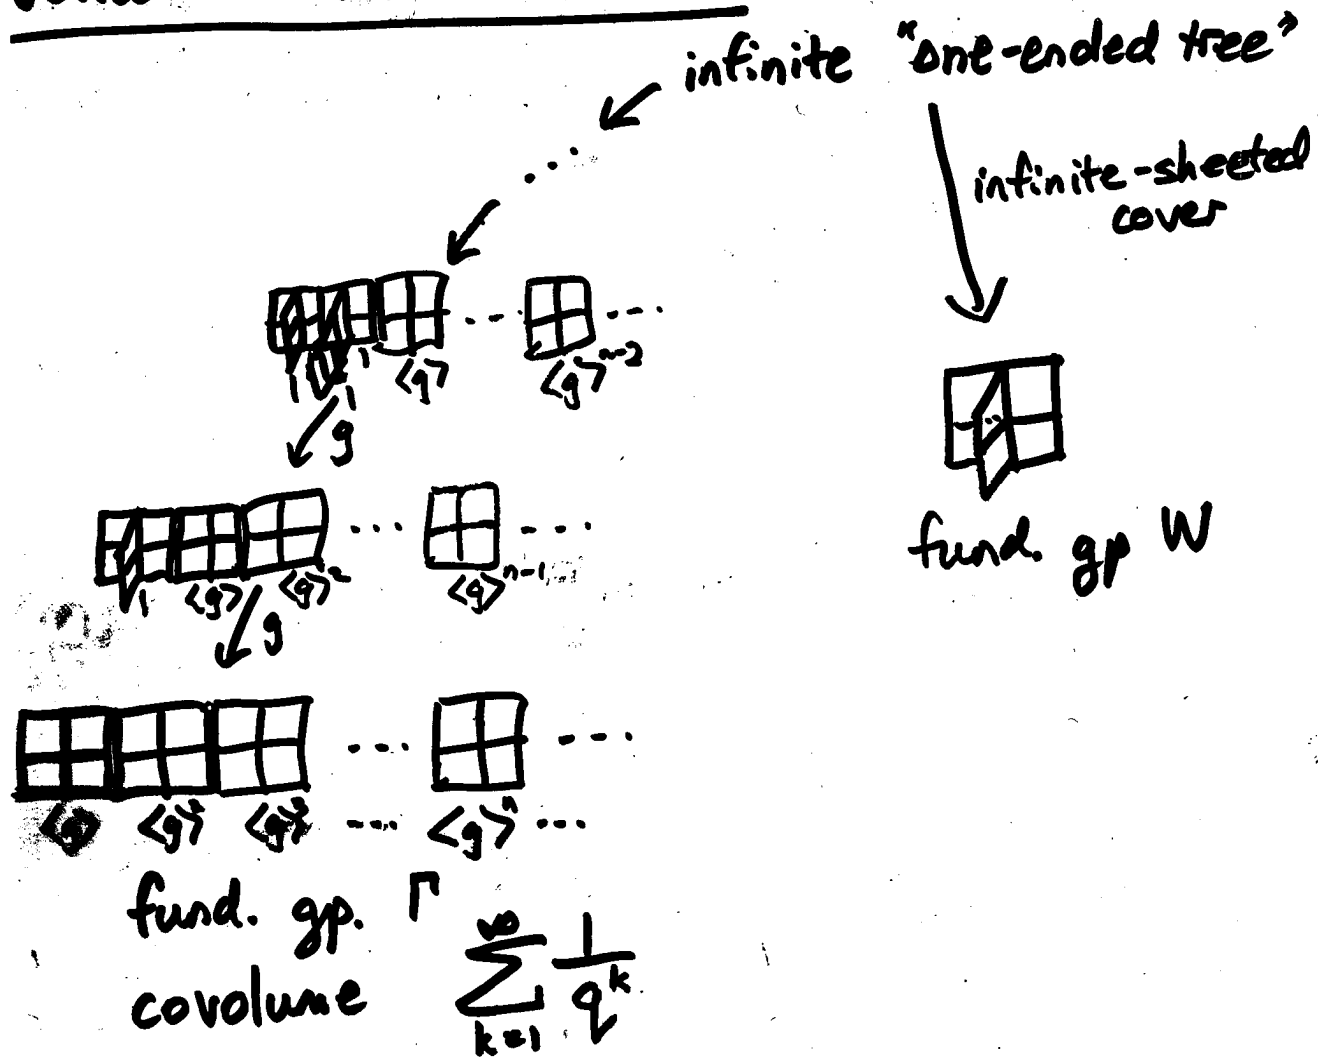 infinite "one-ended tree"
infinite-sheeted
cover
1 1 1 <g> <g>^{n-2}
g
1 <g> <g>^2 ... <g>^{n-1}
g
fund. gp W
<g> <g>^2 <g>^3 ... <g>^n ...
fund. gp. Γ
covolume \sum_{k=1}^{∞} \frac{1}{q^k}